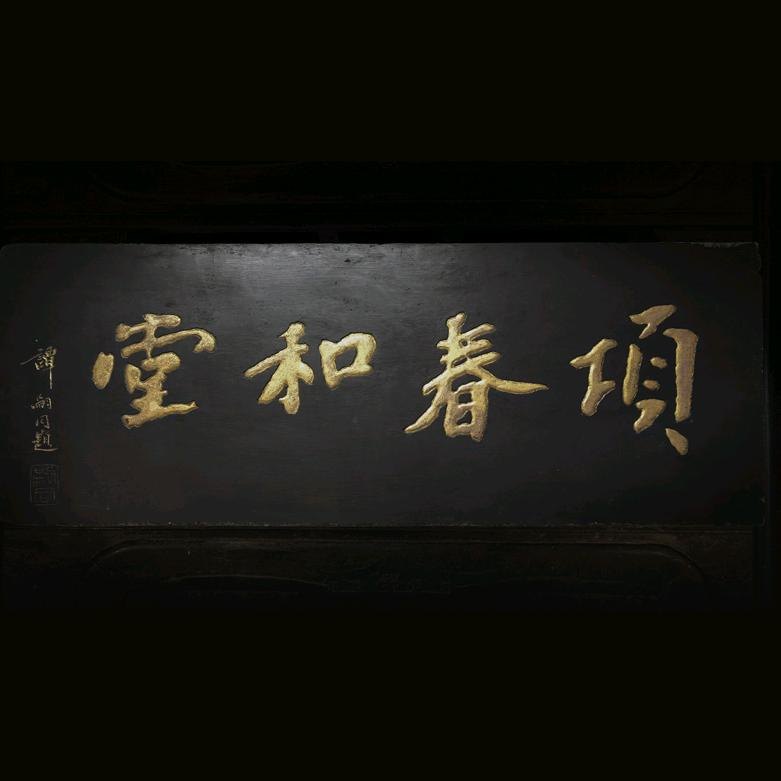 項春和堂
譚嗣同題